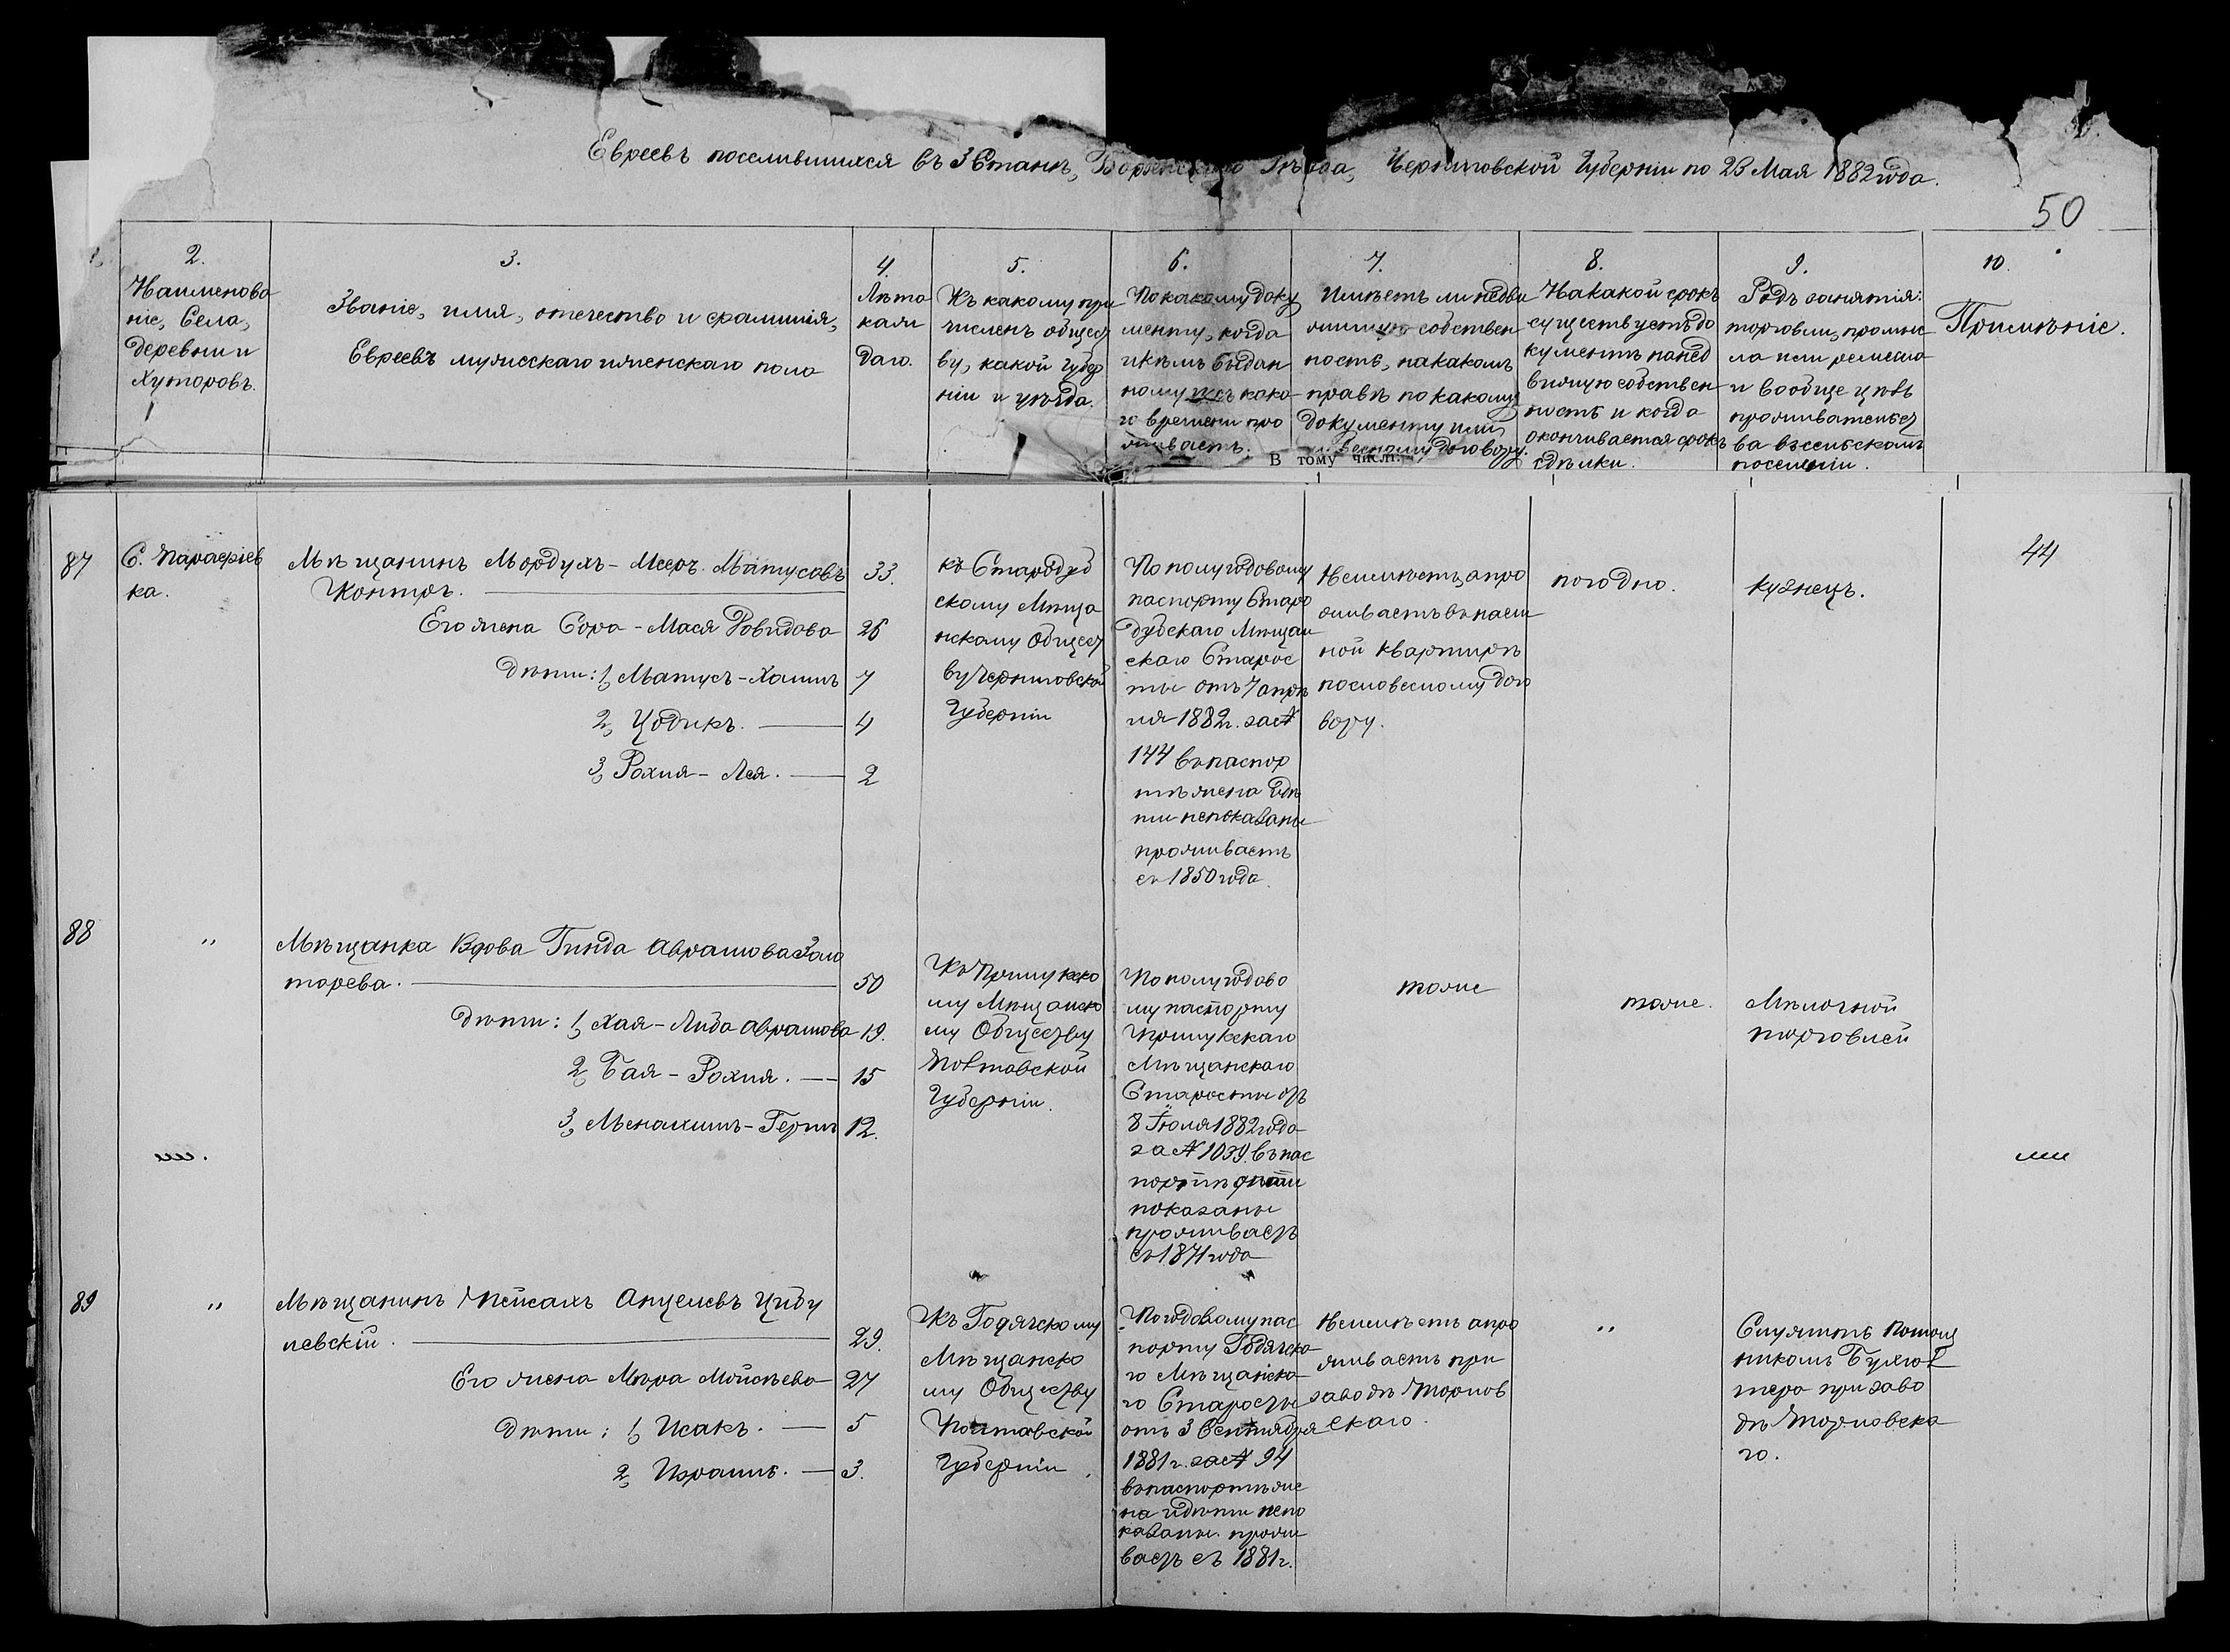 Евреевъ поселившихся въ 3 Станѣ, Борзенскаго Уѣзда, Черниговской Губерніи по 23 Мая 1882 года.
50
2.
Наименова
ніе, Села,
деревни и
Хуторовъ.
3.
Званіе, имя, отечество и фамилія,
Евреевъ мужескаго и женскаго пола
4.
Лѣта
кажд
даго.
5.
Къ какому при
численъ общест
ву, какой губер
ніи и уѣзда.
6.
По какому доку
менту, когда
и кѣмъ выдан
ному и съ како
го времени про
живаетъ.
7.
Имѣетъ ли недви
жимую собствен
ность, на какомъ
правѣ по какому
документу или
словесному договору.
В тому числі:
8.
На какой срокъ
существуетъ до
кументъ на нед
вижимую собствен
ность и когда
окончивается срокъ
сдѣлки.
9.
Родъ занятія:
торговли, промыс
ла или ремесла
и вообще цѣль
проживательст
ва въ сельскомъ
поселеніи.
10.
Примѣніе.
44
87
С. Парафіев
ка.
Мѣщанинъ Мордухъ-Меер. Матусовъ
Конторъ.
33.
Его жена Сора-Мася Довидова 26
Дѣти: 1, Матусъ-Хаимъ 7
2, Цодикъ. 4
3, Рохля-Лея. 2
къ Стародуб
скому Мѣща
нскому Общест
ву Черниговской
Губерніи
По полугодовому
паспорту Старо
дубскаго Мѣщан
скаго Старос
ты отъ 7 апрѣ
ля 1882 г. за №
144 въ паспор
тѣ жена и дѣ
ти непоказаны
проживаетъ
съ 1850 года.
Неимѣетъ, а про
живаетъ въ наем
ной квартирѣ
по словесному дого
вору.
погодно.
кузнецъ.
88
"
Мѣщанка Вдова Гинда Аврамова Золо
тарева. 50
Дѣти: 1, Хая-Либа Аврамова 19.
2, Бая-Рохля. 15
3, Менахимъ-Герш 12.
Къ Прилукско
му Мѣщанско
му Обществу
Полтавской
Губерніи.
По полугодово
му паспорту
Прилукскаго
Мѣщанскаго
Старосты отъ
8 Іюля 1882 года
за № 1039. въ пас
портѣ дѣти
показаны
проживаетъ
съ 1871 года
тоже
тоже.
Мѣлочной
торговлей
89
"
Мѣщанинъ Пейсахъ Анцелевъ Цибу
левскій. 29.
Его жена Мѣра Мойсѣева 27
Дѣти: 1, Исакъ. 5
2, Израиль. 3.
Къ Гадячскому
Мѣщанско
му Обществу
Полтавской
Губерніи.
По годовому пас
порту Гадячска
го Мѣщанска
го Старосты
отъ 3 Сентября
1881 г. за № 94
въ паспортѣ же
на и дѣти непо
казаны. прожи
ваетъ съ 1881 г.
Неимѣетъ а про
живаетъ при
заводѣ Торнов
скаго.
"
Служитъ помощ
никомъ Бухгал
тера при заво
дѣ Торновска
го.